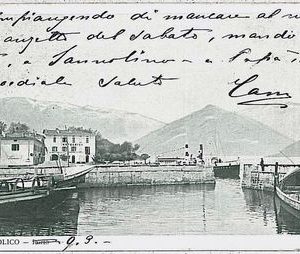 mpiangendo di mancare al r
anzetto del Sabato, mando
, a Sannolino - a Papà
rdiale Saluto
OLICO — Porto
9. 3. —